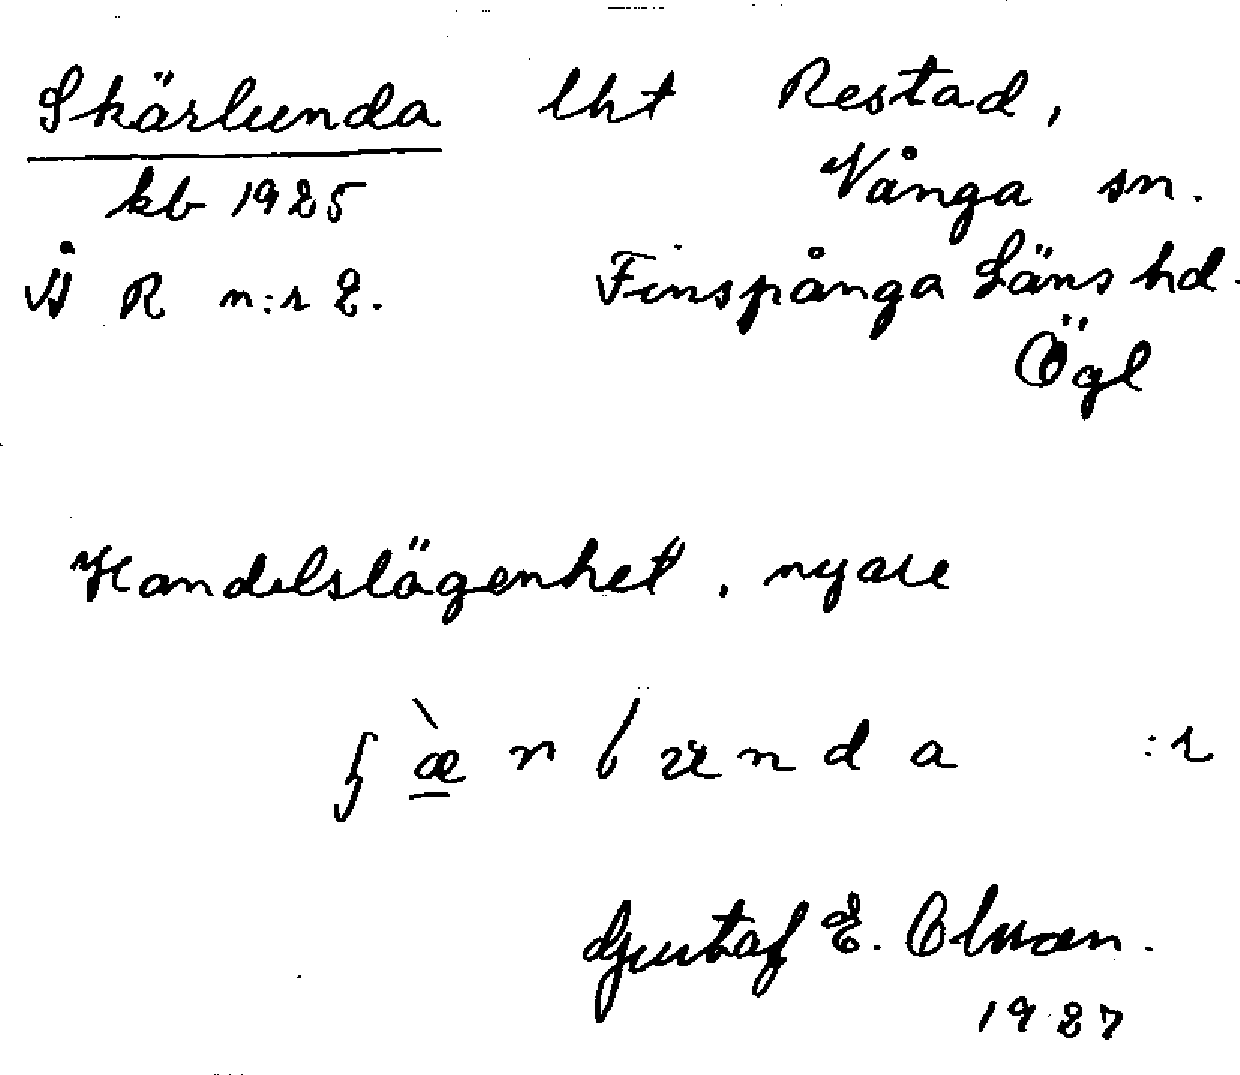 Skärlunda lht Restad,
kb 1925 Vånga sn.
Å R n:r 2. Finspånga Läns hd.
Ögl
Handelslägenhet, nyare
:r
Gustaf E. Olson.
1927